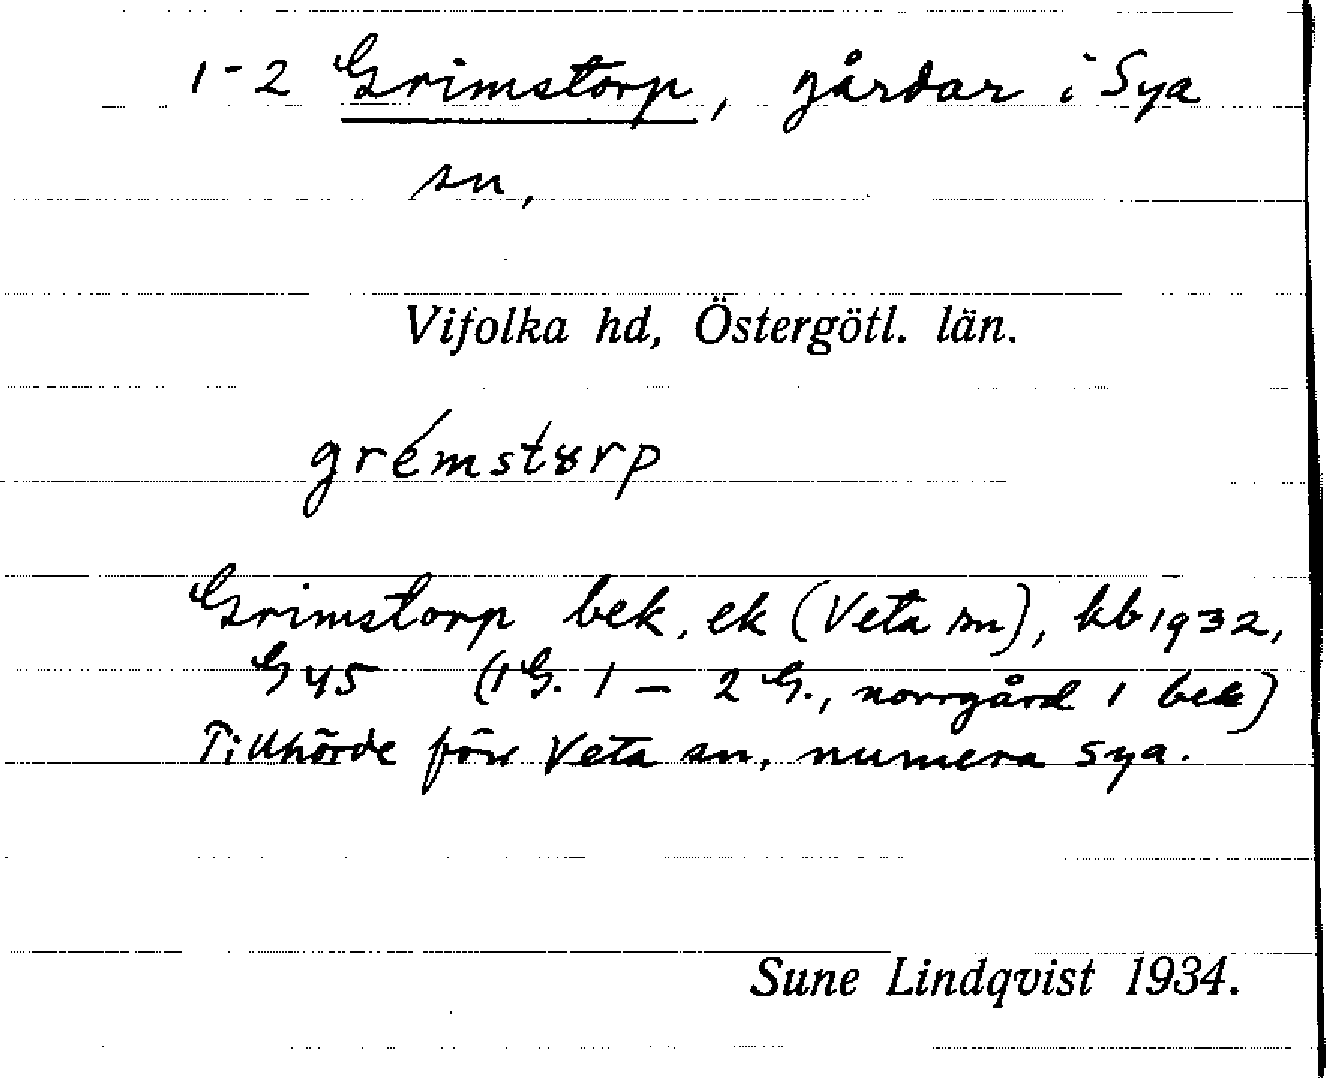 1-2 Grimstorp, gårdar i Sya
sn,
Vifolka hd, Östergötl. län.
grémstɤrp
Grimstorp bek, ek (Veta sn), kb 1932,
G 45 (1 G. 1 – 2 G., norrgård 1 bek)
Tillhörde förr Veta sn, numera Sya.
Sune Lindqvist 1934.